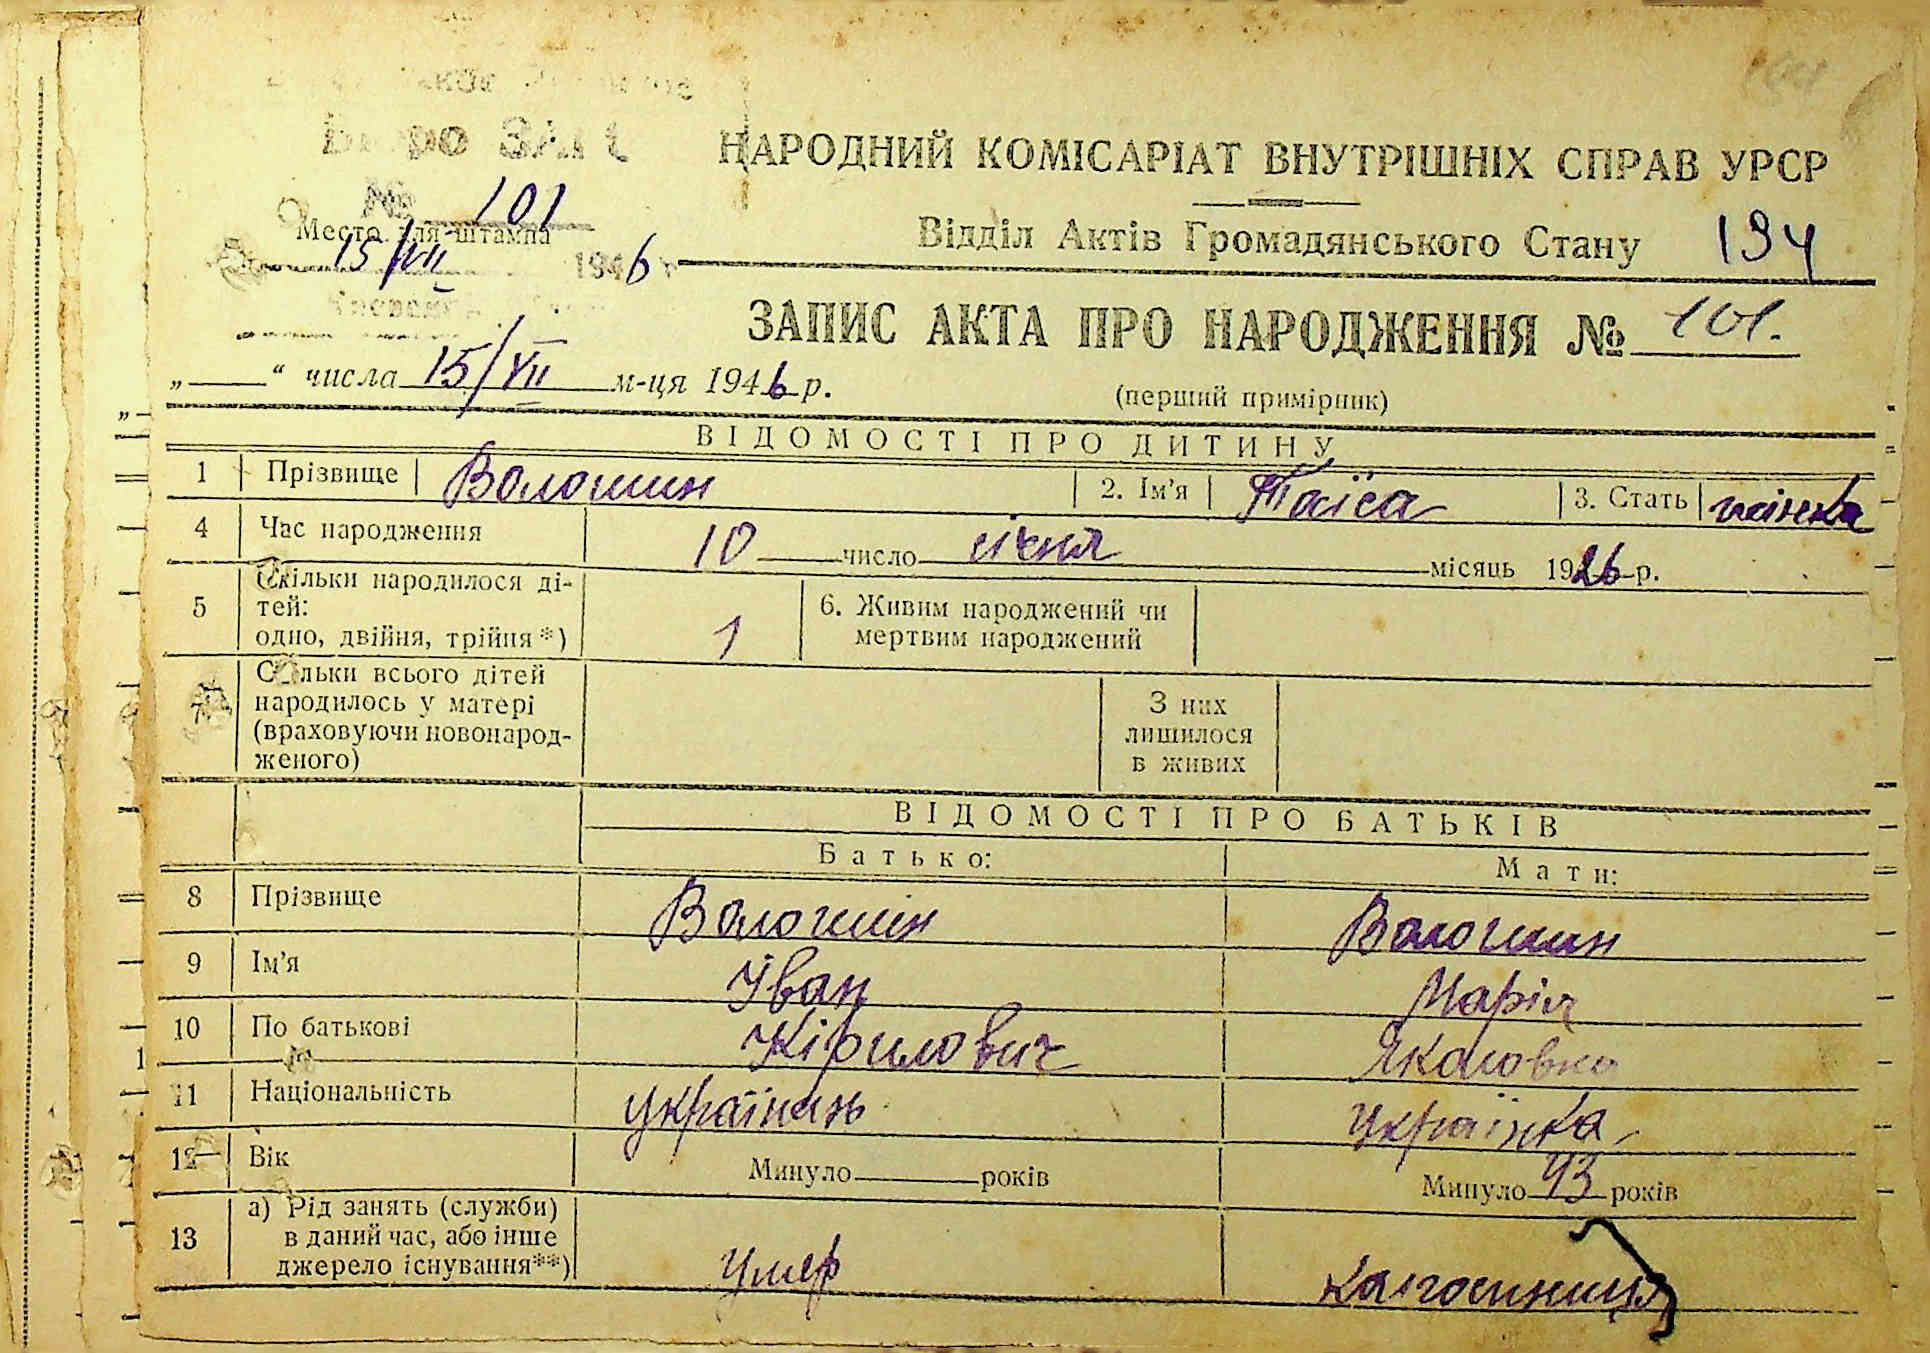 Бюро ЗАГС
№ 101
Место для штампа
15/VII 1946 г
НАРОДНИЙ КОМІСАРІАТ ВНУТРІШНІХ СПРАВ УРСР
Відділ Актів Громадянського Стану 194
ЗАПИС АКТА ПРО НАРОДЖЕННЯ № 101.
„ “ числа 15/VII м-ця 1946 р.
(перший примірник)
ВІДОМОСТІ ПРО ДИТИНУ
1 Прізвище Волошин 2. Ім’я Таїса 3. Стать жінка
4 Час народження 10 число січня місяць 1926 р.
5 Скільки народилося ді-
тей:
одно, двійня, трійня*) 1
6. Живим народжений чи
мертвим народжений
7 Скільки всього дітей
народилось у матері
(враховуючи новонарод-
женого)
З них
лишилося
в живих
ВІДОМОСТІ ПРО БАТЬКІВ
Батько: Мати:
8 Прізвище Волошин Волошин
9 Ім’я Іван Марія
10 По батькові Кірилович Яколовна
11 Національність українинь українка
12 Вік Минуло років Минуло 43 років
13 а) Рід занять (служби)
в даний час, або інше
джерело існування**) умер колгосниця